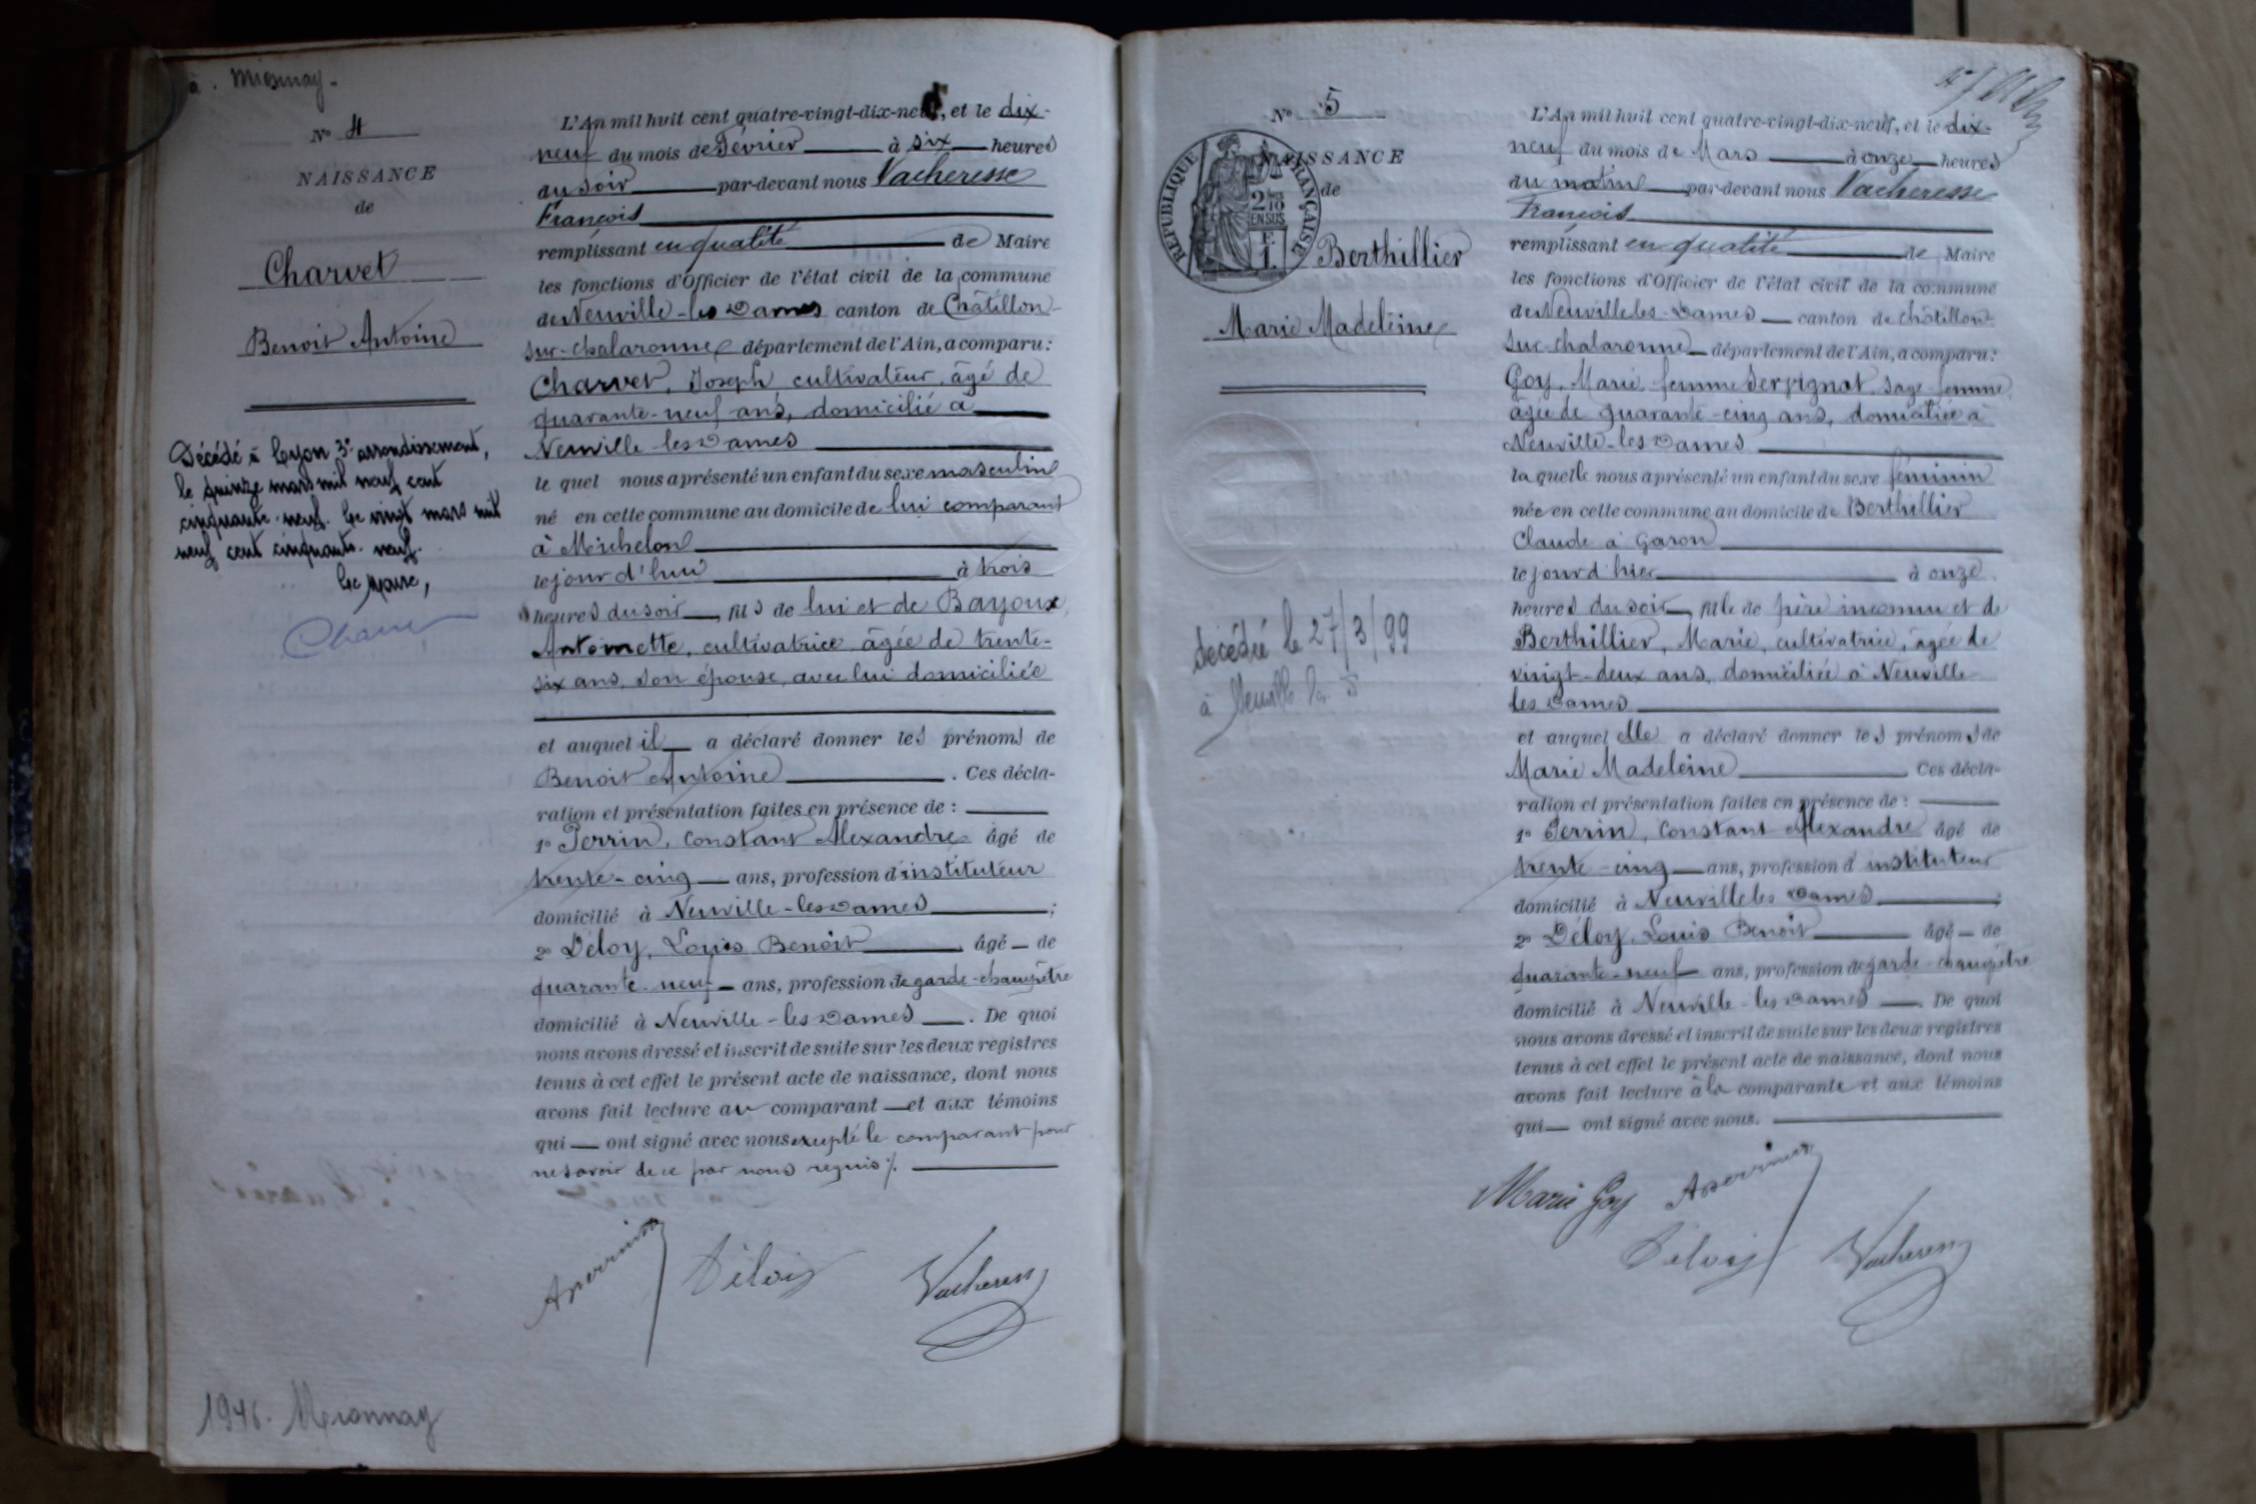 à Mionnay -
N° 4
NAISSANCE
de
Charvet
Benoit Antoine
Décédé à Lyon 3e arrondissement,
le quinze mars mil neuf cent
cinquante-neuf. Le vingt mars mil
neuf cent cinquante-neuf.
Le Maire,
1946. Mionnay
L'An mil huit cent quatre-vingt-dix-neuf, et le dix-
neuf du mois de Février à six heures
du soir par-devant nous Vacheresse
François
remplissant en qualité de Maire
les fonctions d'Officier de l'état civil de la commune
de Neuville-les-Dames canton de Châtillon-
sur-Chalaronne département de l'Ain, a comparu :
Charvet, Joseph cultivateur, âgé de
quarante-neuf ans, domicilié à
Neuville-les-Dames
le quel nous a présenté un enfant du sexe masculin
né en cette commune au domicile de lui comparant
à Michelon
le jour d'hui à trois
heures du soir, fils de lui et de Bayoux,
Antoinette, cultivatrice âgée de trente-
six ans, son épouse, avec lui domiciliée
et auquel il a déclaré donner les prénoms de
Benoit Antoine. Ces décla-
ration et présentation faites en présence de :
1° Perrin, Constant Alexandre âgé de
trente-cinq ans, profession d'instituteur
domicilié à Neuville-les-Dames ;
2° Déloy, Louis Benoît âgé de
quarante-neuf ans, profession de garde-champêtre
domicilié à Neuville-les-Dames. De quoi
nous avons dressé et inscrit de suite sur les deux registres
tenus à cet effet le présent acte de naissance, dont nous
avons fait lecture au comparant et aux témoins
qui ont signé avec nous excepté le comparant pour
ne savoir de ce par nous requis ./.
Aperrin Déloy Vacheresse
N° 5
NAISSANCE
de
RÉPUBLIQUE FRANÇAISE
2/10 EN SUS
F. 1.
Berthillier
Marie Madeleine
Décédée le 27/3/99
à Neuville les D
L'An mil huit cent quatre-vingt-dix-neuf, et le dix-
neuf du mois de Mars à onze heures
du matin par-devant nous Vacheresse
François
remplissant en qualité de Maire
les fonctions d'Officier de l'état civil de la commune
de Neuville-les-Dames canton de Châtillon-
sur-Chalaronne département de l'Ain, a comparu :
Goy, Marie femme Servignat sage-femme
âgée de quarante-cinq ans, domiciliée à
Neuville-les-Dames
la quelle nous a présenté un enfant du sexe féminin
née en cette commune au domicile de Berthillier
Claude à Garon
le jour d'hier à onze
heures du soir, fille de père inconnu et de
Berthillier, Marie, cultivatrice, âgée de
vingt-deux ans, domiciliée à Neuville-
les Dames
et auquel elle a déclaré donner les prénoms de
Marie Madeleine Ces décla-
ration et présentation faites en présence de :
1° Perrin, Constant Alexandre âgé de
trente-cinq ans, profession d'instituteur
domicilié à Neuville les Dames ;
2° Déloy, Louis Benoît âgé de
quarante-neuf ans, profession de garde-champêtre
domicilié à Neuville-les-Dames. De quoi
nous avons dressé et inscrit de suite sur les deux registres
tenus à cet effet le présent acte de naissance, dont nous
avons fait lecture à la comparante et aux témoins
qui ont signé avec nous.
Marie Goy Aperrin
Déloy Vacheresse